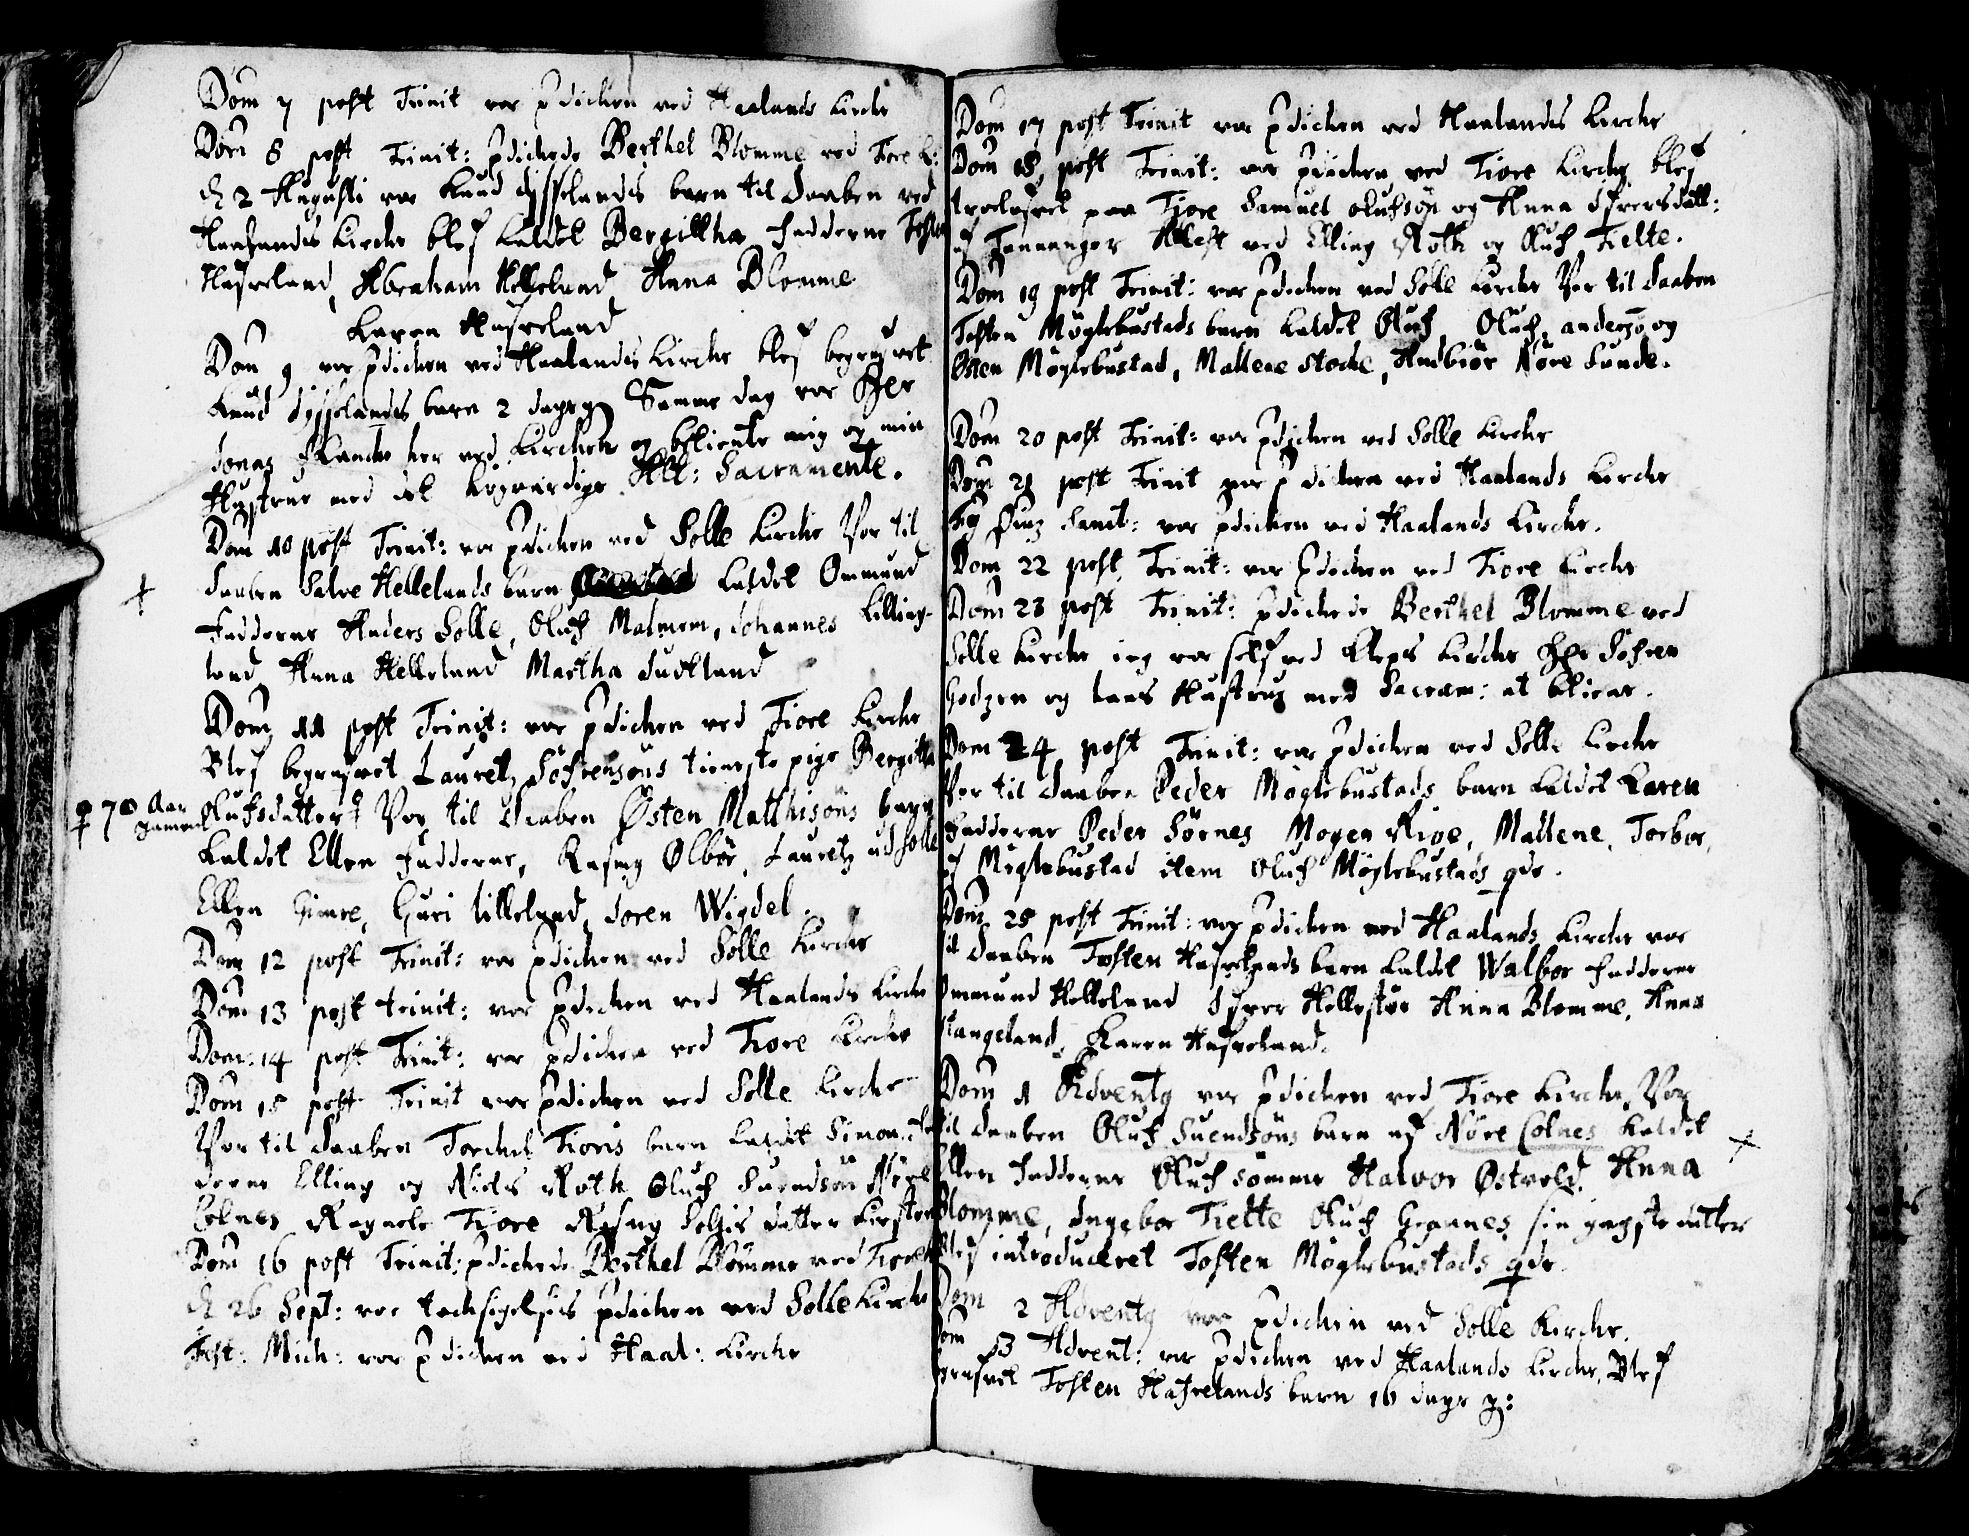 Dom 7 post Trinit var prdicken ved Haalands Kircke
Dom 8 post Trinit: prdickede Berthel Blomme ved Tiore K:
d 2 Augusti var Knud Jysselandes barn til Daaben ved
Haalandes Kircke blef kaldet Bergittha Fadderne Tosten
Hafreland, Abraham Helleland Anna Blomme
Karen Hafreland
Dom 9 var prdicken ved Haalandes Kircke blef begrafvet
Knud Jysselandes barn 2 dage g: Samme dag var Hr
Jonas her ved Kircken og betiente mig og min
Hustrue med det høgværdige Alt: Sacramente.
Dom 10 post Trinit: var prdicken ved Solle Kircke Var til
daaben Salve Hellelands barn kaldet Ommund
Fadderne Anders Solle, Oluf Malmem, Johannes Lilling-
land Anna Helleland Martha Sudtland
Dom 11 post Trinit: var prdicken ved Tiore Kircke
Blef begrafvet Lauretz Søfrensøns tieneste pige Bergitta
70 Aar gammel
Olufsdatter Var til Daaben Østen Matthisøns barn
kaldet Ellen Fadderne, Rasmg Ølbør, Lauretz ud Solle
Ellen Gimre, Guri lilleland, Soren Wigdel.
Dom 12 post Trinit: var prdicken ved Solle Kircke
Dom 13 post trinit: var prdicken ved Haalandes Kircke
Dom: 14 post Trinit: var prdicken ved Tiore Kircke
Dom 15 post Trinit var prdicken ved Solle Kircke
Var til daaben Torckel Tioris barn kaldet Simon, Fa
derne Elling og Niels Roth Oluf Suendsøn Nøre
Colnes Ragnele Tiore datter Kirsten
Dom 16 post Trinit: prdickede Berthel Blomme ved Tiore K
d 26 Sept: var tacksigelsis prdicken ved Solle Kircke
Fest: Mich: var prdicken ved Haal: Kircke
Dom 17 post Trinit var prdicken ved Haalandes Kircke
Dom 18 post Trinit: var prdicken ved Tiore Kircke blef
trolofvet paa Tiore Samuel olufsøn og Anna Ifversdatt:
ved Elling Roth og Oluf Tielte.
Dom 19 post Trinit: var prdicken ved Solle Kircke Var til Daaben
Tosten Møglebustads barn kaldet Oluf, Oluf, anderss og
Østen Møglebustad, Mallene Stocke, Anbiør Nøre Sunde.
Dom 20 post Trinit: var prdicken ved Solle Kircke
Dom 21 post Trinit var prdicken ved Haalands Kircke
Sanct: var prdicken ved Haalands Kircke.
Dom 22 post Trinit: var prdicken ved Tiore Kircke
Dom 23 post Trinit: prdickede Berthel Blomme ved
Solle Kircke ieg var self ved Kleps Kircke Hr Søfren
Godzen og hans Hustrug med Sacram: at betiene.
Dom 24 post Trinit: var prdicken ved Solle Kircke
Var til Daaben Peder Møglebustads barn kaldet Karen
Fadderne Peder Sørnes Mogen Rige, Mallene, Torbor,
af Møglebustad item Oluf Møglebustads qde.
Dom 25 post Trinit: var prdicken ved Haalands Kircke var
til daaben Tosten Hafrelands barn kaldet Walbor Fadderne
Ommund Helleland Ifver Hellestøe Anna Blomme, Anna
Stangeland, Karen Hafreland.
Dom 1 Adventg var prdicken ved Tiore Kircke, Var
til daaben Oluf Suendsøns barn af Nøre Colnes kaldet
Ellen Fadderne Oluf Sømme Halvor Østvold, Anna
Blomme, Ingebor Tielte Oluf Grannes sin ægste datter
Blef introduceret Tosten Møglebustads qde.
Dom 2 Adventg var prdicken ved Solle Kircke.
Dom 3 Advent: var prdicken ved Haalands Kircke, Blef
begrafvet Tosten Hafrelands barn 16 dage g: